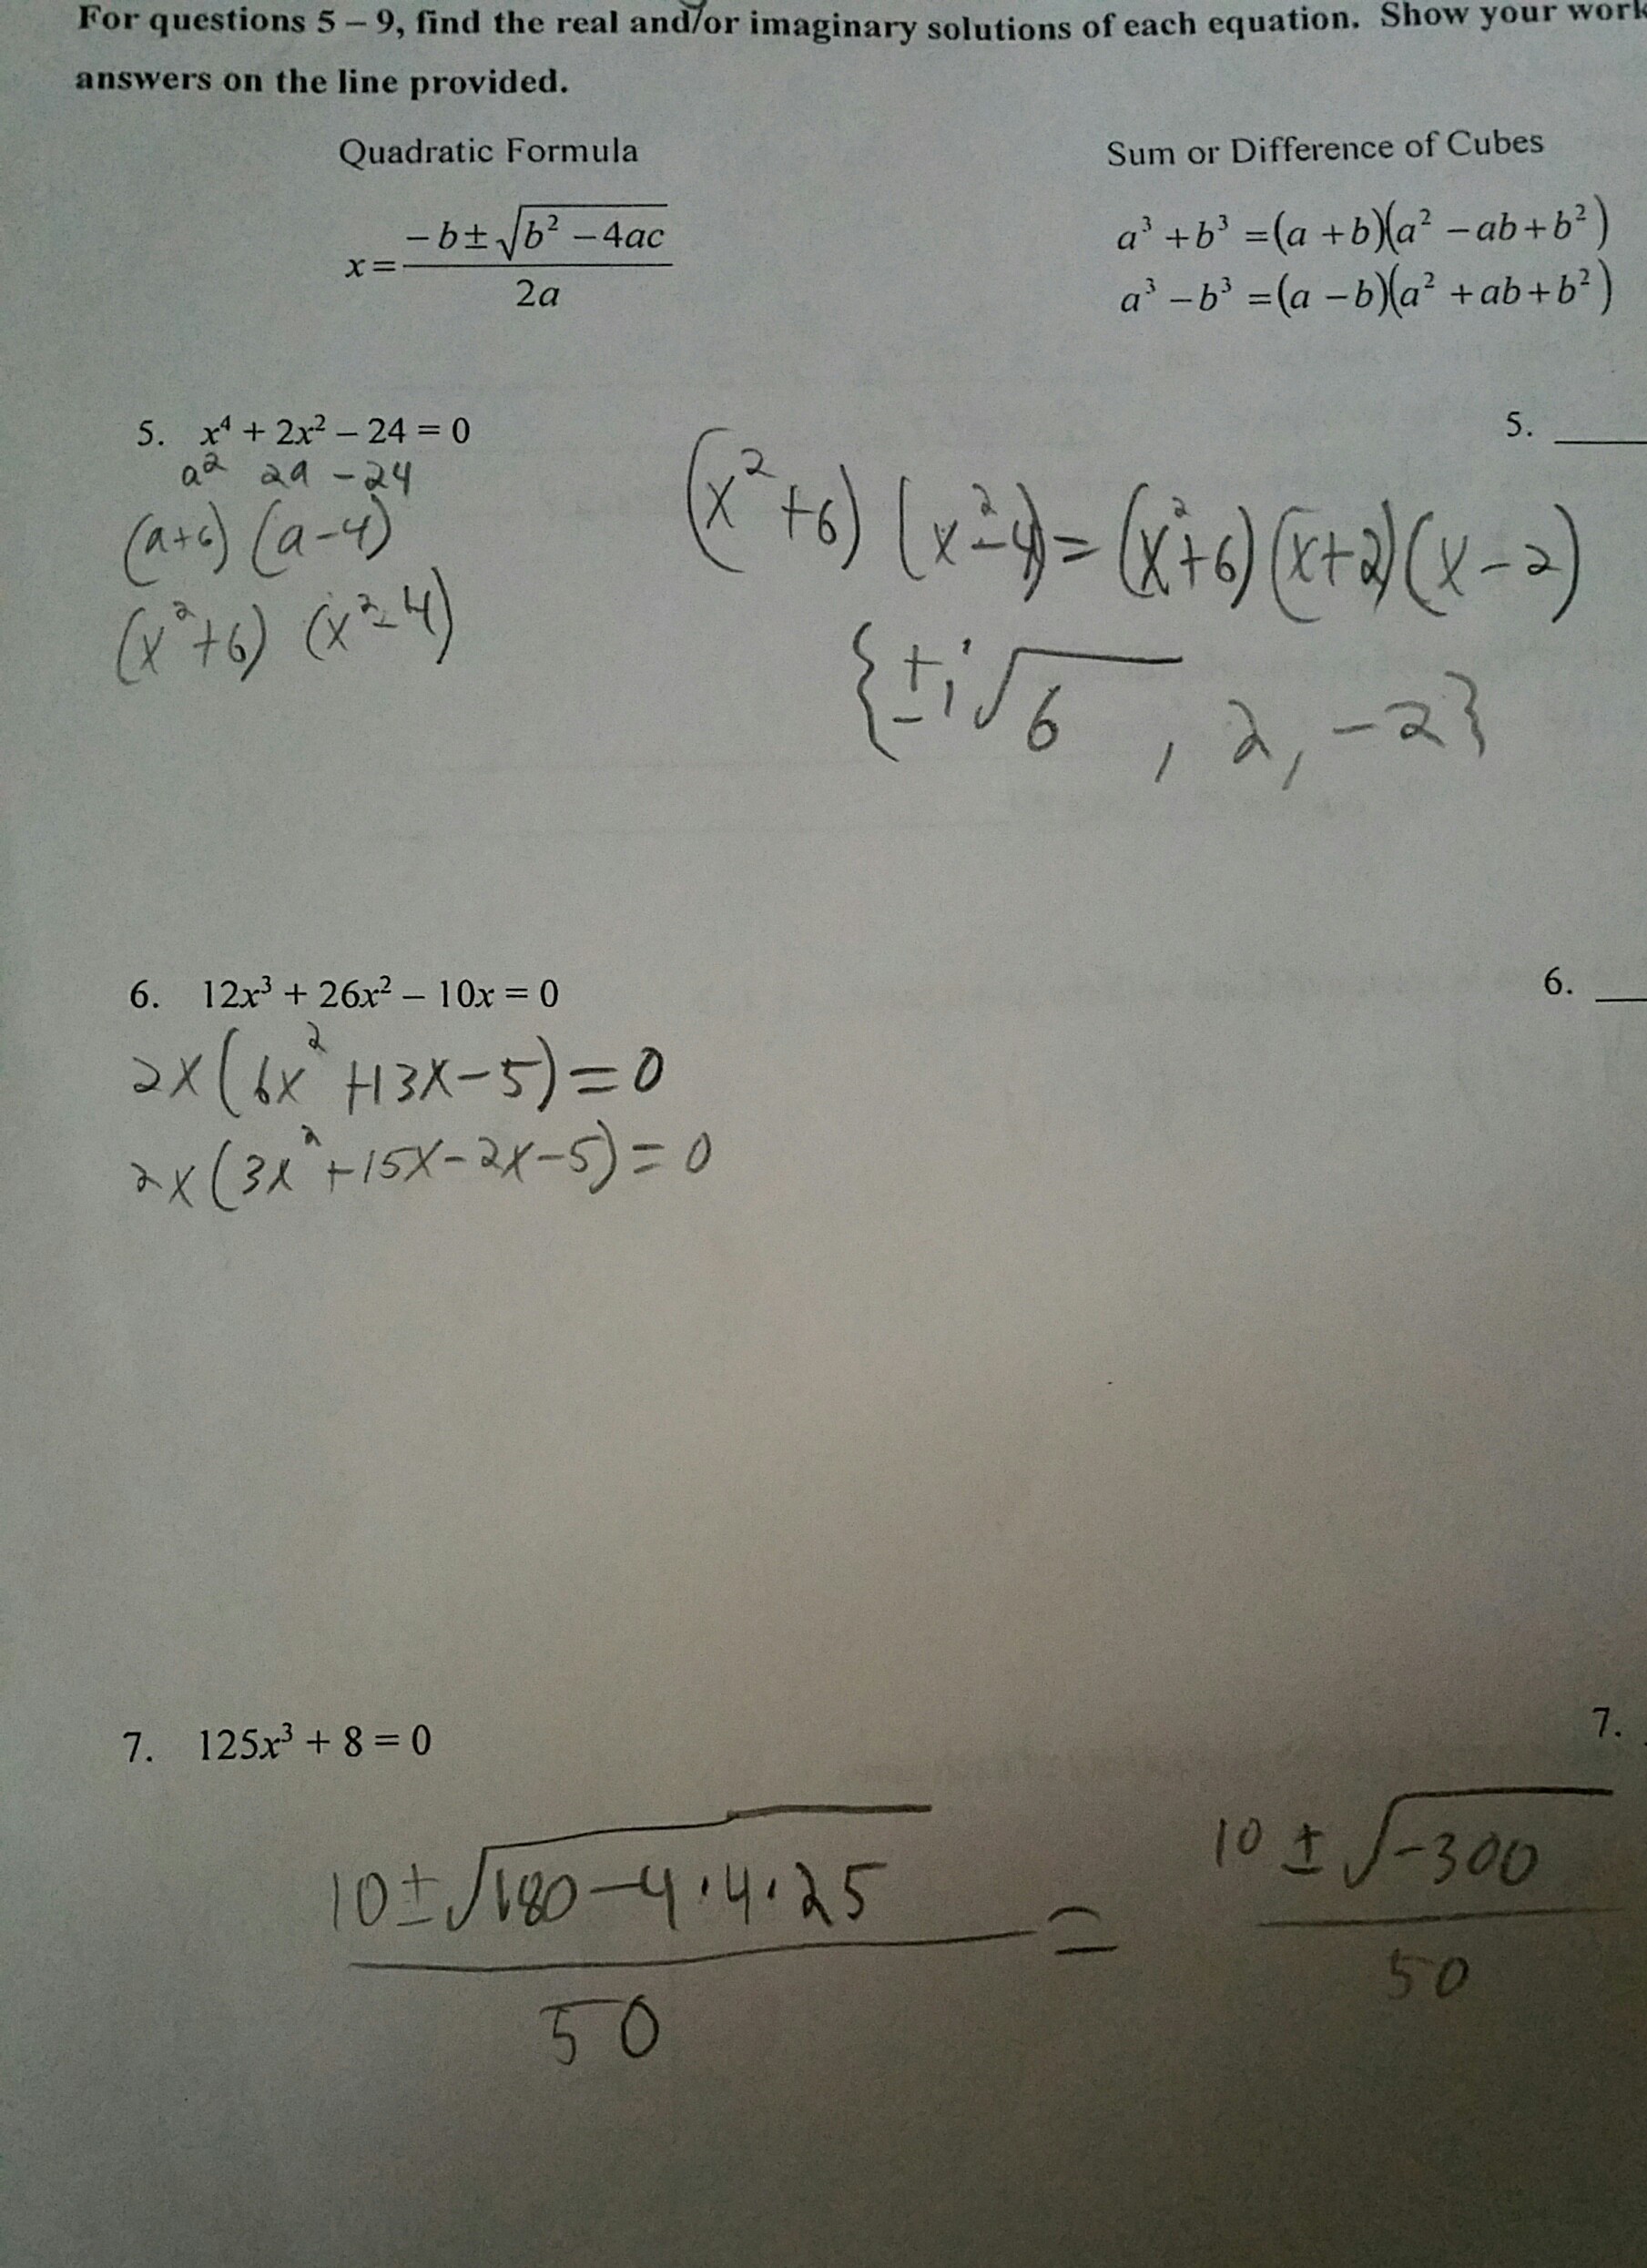 For questions 5 – 9, find the real and/or imaginary solutions of each equation. Show your work
answers on the line provided.
Quadratic Formula
Sum or Difference of Cubes
x = (-b ± √(b² – 4ac)) / 2a
a³ + b³ = (a + b)(a² – ab + b²)
a³ – b³ = (a – b)(a² + ab + b²)
5. x⁴ + 2x² – 24 = 0
5.
a² 2a -24
(a+6) (a-4)
(x²+6) (x²-4)
(x²+6) (x²-4) = (x²+6)(x+2)(x-2)
{±i√6, 2, -2}
6. 12x³ + 26x² – 10x = 0
6.
2x(6x²+13x-5)=0
2x(3x²+15x-2x-5)=0
7. 125x³ + 8 = 0
7.
(10±√(180-4·4·25)) / 50 = (10 ± √-300) / 50